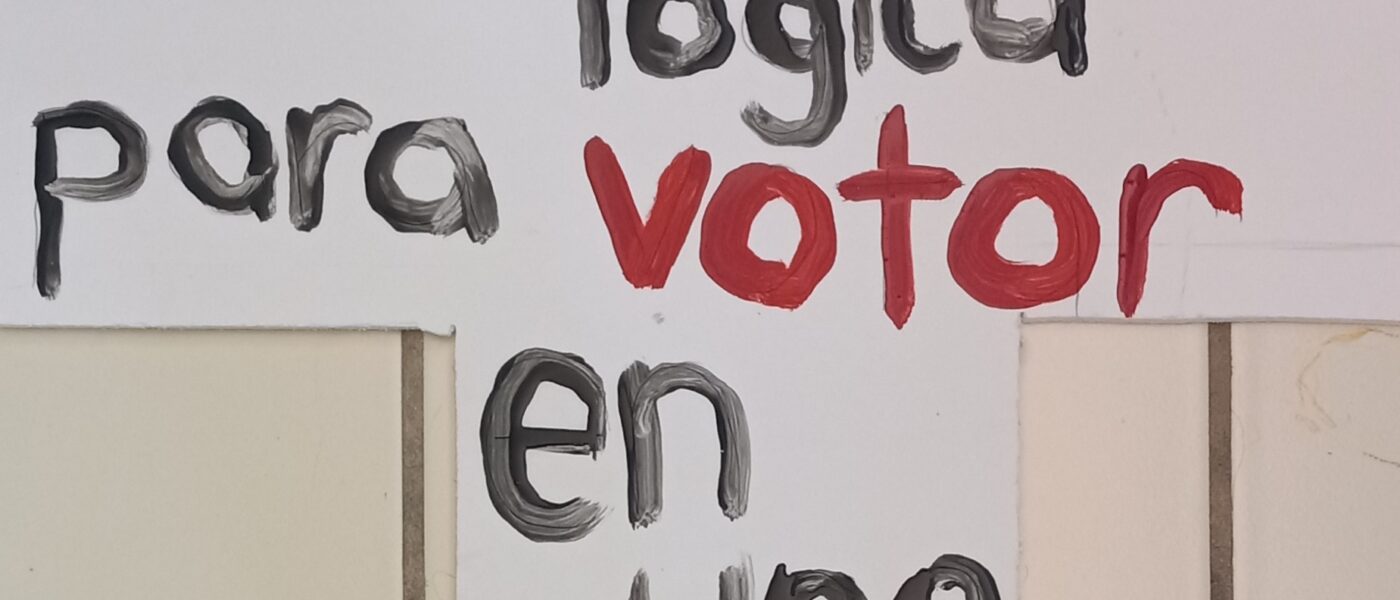 lógica
para votor
en